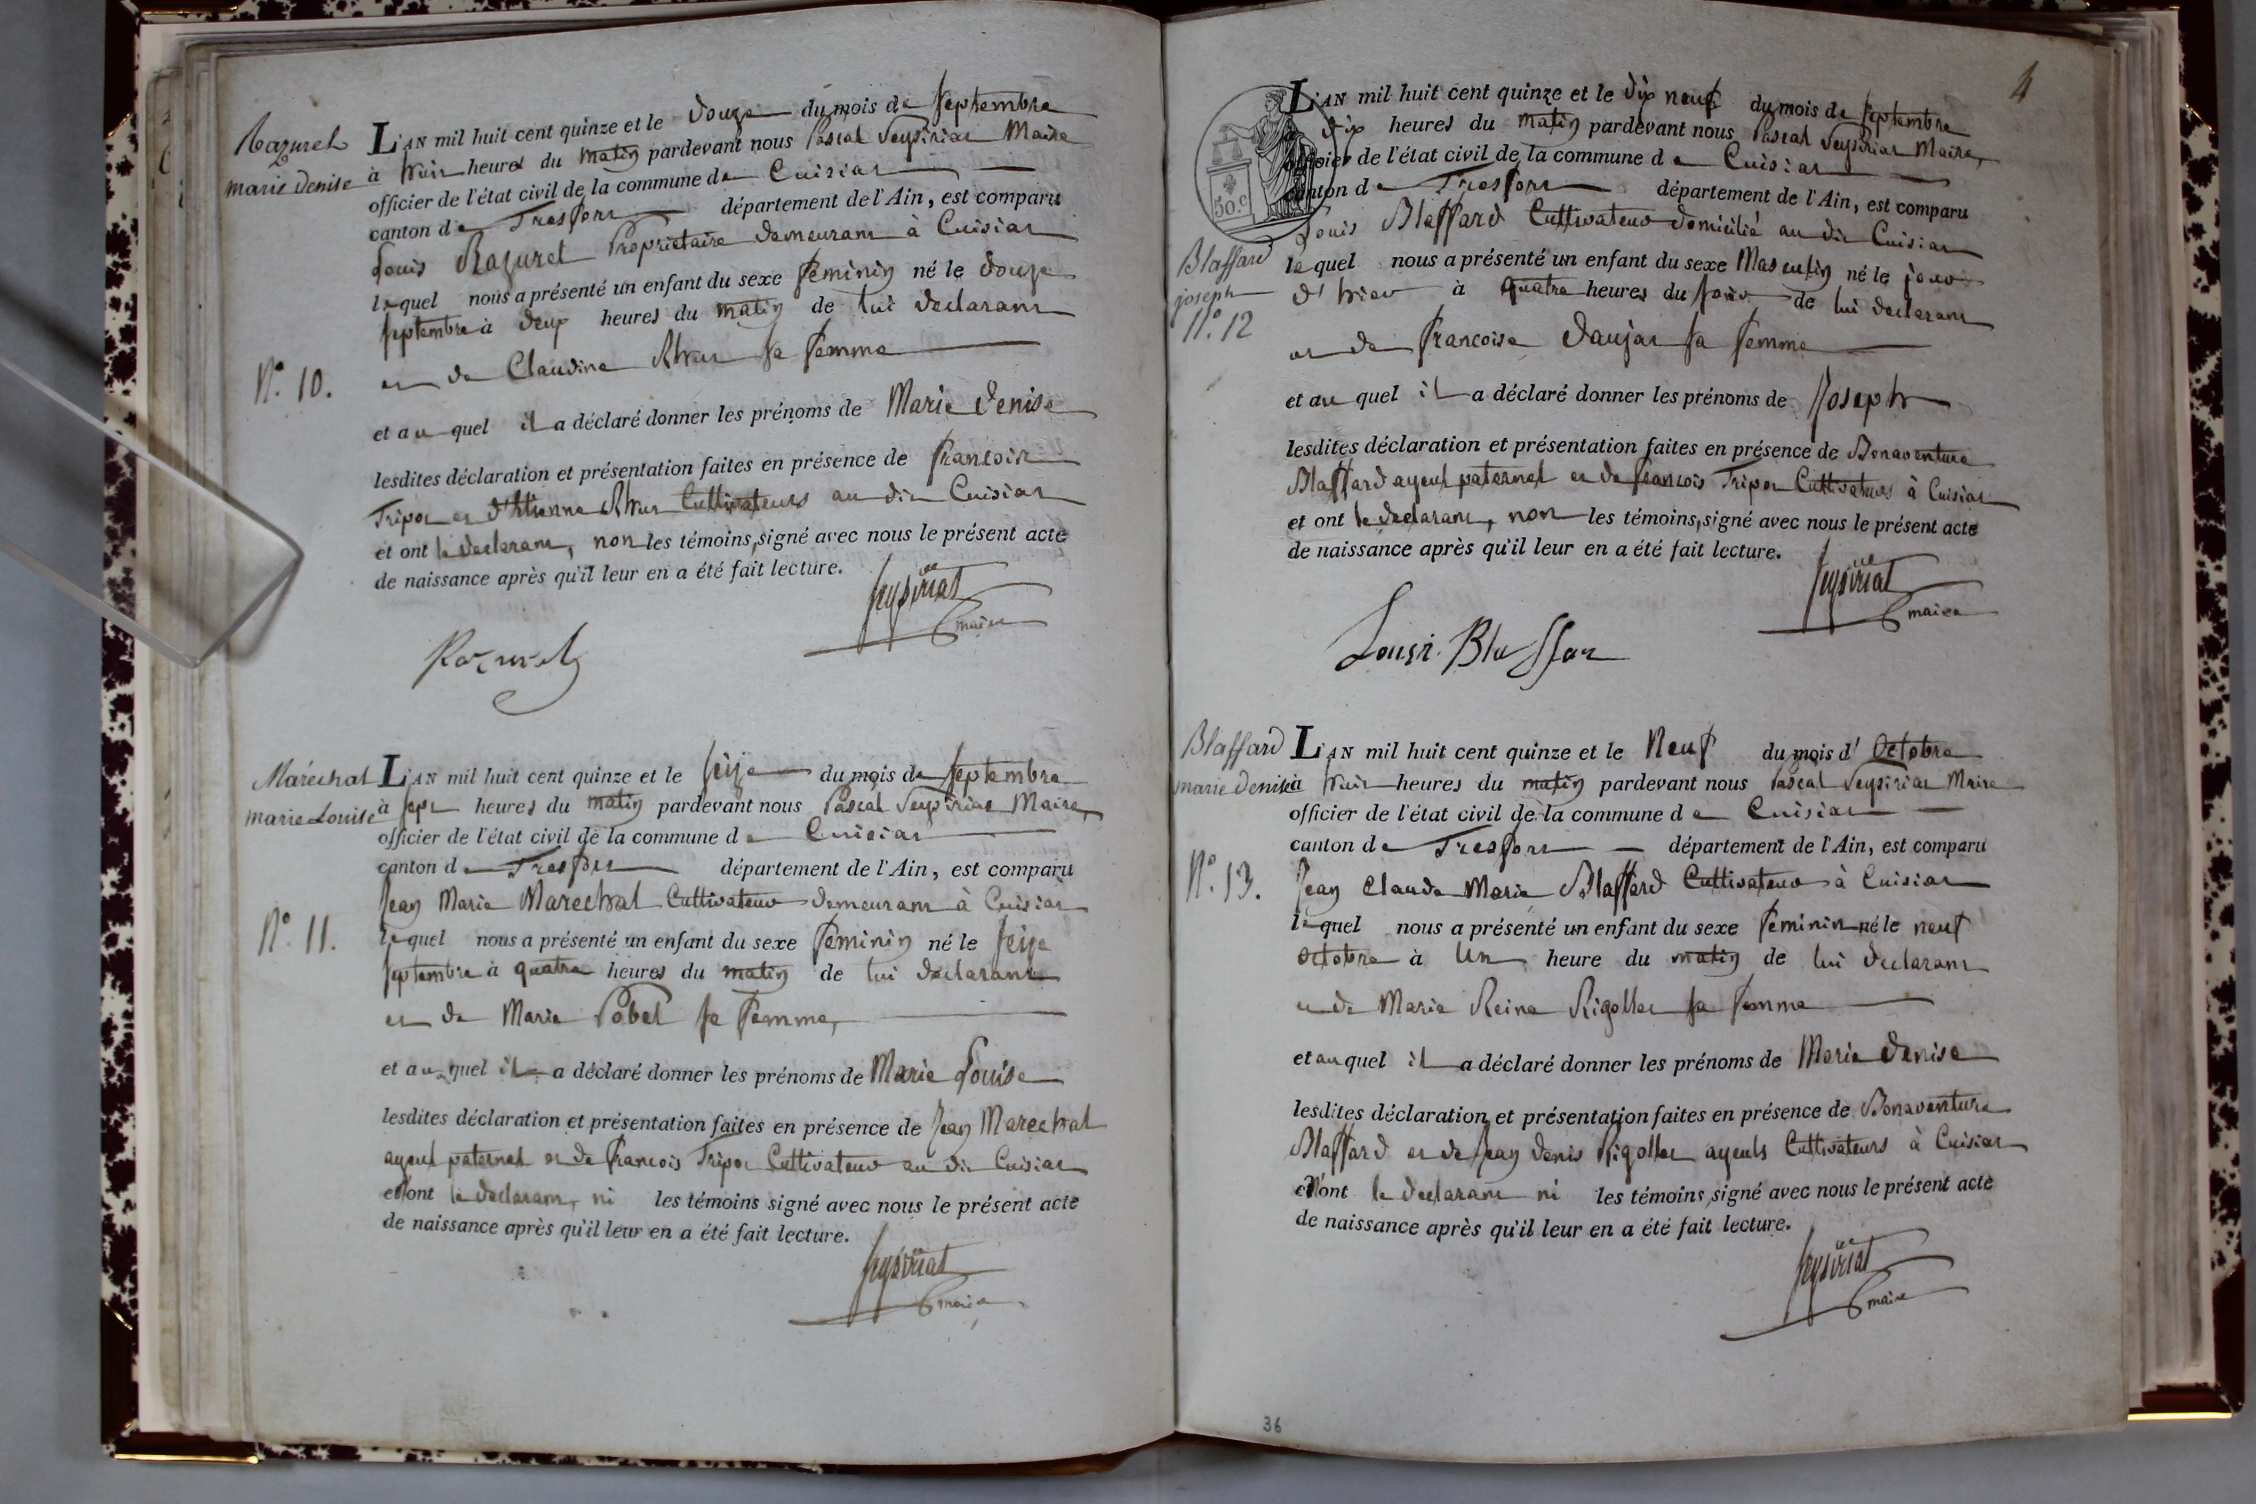 Razurel
marie denise
N.o 10.
L'AN mil huit cent quinze et le douze du mois de septembre
à huit heures du matin pardevant nous Pascal Seysiriat Maire
officier de l'état civil de la commune de Cuisiat
canton de Tresfort département de l'Ain, est comparu
Louis Razurel Propriétaire demeurant à Cuisiat
lequel nous a présenté un enfant du sexe feminin né le douze
septembre à deux heures du matin de lui declarant
et de Claudine sa femme
et au quel il a déclaré donner les prénoms de Marie denise
lesdites déclaration et présentation faites en présence de francois
Tripoz et d'Etienne Cultivateurs au dit Cuisiat
et ont le declarant, non les témoins, signé avec nous le présent acte
de naissance après qu'il leur en a été fait lecture.
Seysiriat
maire
Razurel
Maréchal
marie Louise
N.o 11.
L'AN mil huit cent quinze et le seize du mois de septembre
à sept heures du matin pardevant nous Pascal Seysiriat Maire,
officier de l'état civil de la commune de Cuisiat
canton de Tresfort département de l'Ain, est comparu
Jean Marie Marechal Cultivateur demeurant à Cuisiat
lequel nous a présenté un enfant du sexe feminin né le seize
septembre à quatre heures du matin de lui declarant
et de Marie Pobel sa femme,
et au quel il a déclaré donner les prénoms de Marie Louise
lesdites déclaration et présentation faites en présence de Jean Marechal
ayeul paternel et de francois Tripoz Cultivateur au dit Cuisiat
et n'ont le declarant, ni les témoins signé avec nous le présent acte
de naissance après qu'il leur en a été fait lecture.
Seysiriat
maire
4
50.c
Blaffard
joseph
N.o 12
L'AN mil huit cent quinze et le dix neuf du mois de septembre
dix heures du matin pardevant nous Pascal Seysiriat Maire,
officier de l'état civil de la commune de Cuisiat
canton de Tresfort département de l'Ain, est comparu
Louis Blaffard Cultivateur domicilié au dit Cuisiat
lequel nous a présenté un enfant du sexe Masculin né le jour
d'hier à quatre heures du soir de lui declarant
et de francoise daujat sa femme
et au quel il a déclaré donner les prénoms de Joseph
lesdites déclaration et présentation faites en présence de Bonaventure
Blaffard ayeul paternel et de francois Tripoz Cultivateurs à Cuisiat
et ont le declarant, non les témoins, signé avec nous le présent acte
de naissance après qu'il leur en a été fait lecture.
Seysiriat
maire
Blaffard
marie denise
N.o 13.
L'AN mil huit cent quinze et le Neuf du mois d'Octobre
à huit heures du matin pardevant nous Pascal Seysiriat Maire
officier de l'état civil de la commune de Cuisiat
canton de Tresfort département de l'Ain, est comparu
Jean Claude Marie Blaffard Cultivateur à Cuisiat
lequel nous a présenté un enfant du sexe feminin né le neuf
Octobre à Un heure du matin de lui declarant
et de Marie Reine Rigollet sa femme
et au quel il a déclaré donner les prénoms de Marie denise
lesdites déclaration et présentation faites en présence de Bonaventure
Blaffard et de Jean denis Rigollet ayeuls Cultivateurs à Cuisiat
et n'ont le declarant ni les témoins signé avec nous le présent acte
de naissance après qu'il leur en a été fait lecture.
Seysiriat
maire
36